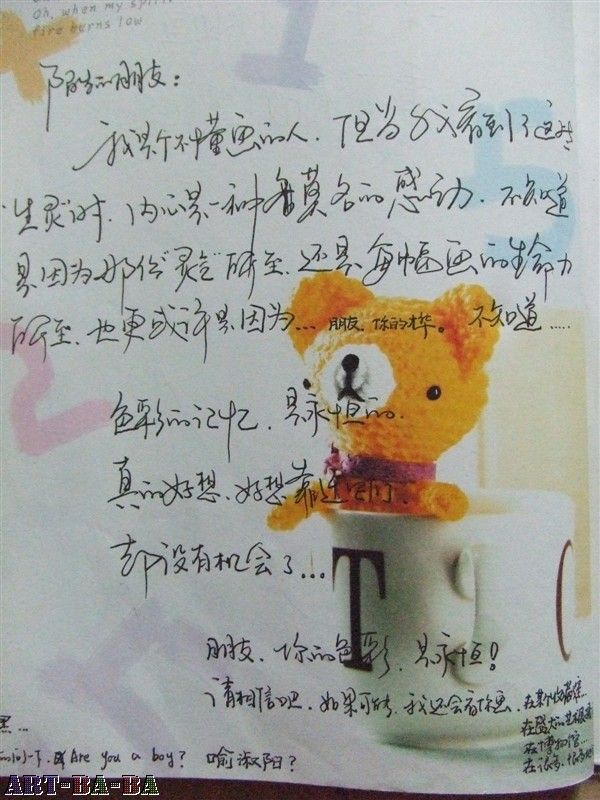 Oh, when my spiri
fire burns low
陌生的朋友:
我是个不懂画的人,但当我看到了这些
"生灵"时,内心是一种莫名的感动,不知道
是因为那份"灵气"所至,还是每幅画的生命力
所至,也更或许是因为... 朋友,你的 。不知道......
色彩的记忆,是永恒的.
真的好想,好想靠近它们,
却没有机会了...
朋友,你的色彩,是永恒!
请相信吧,如果可转,我还会看你画,
在博物馆...
Are you a boy? 喻淑阳?
T C
ART-BA-BA